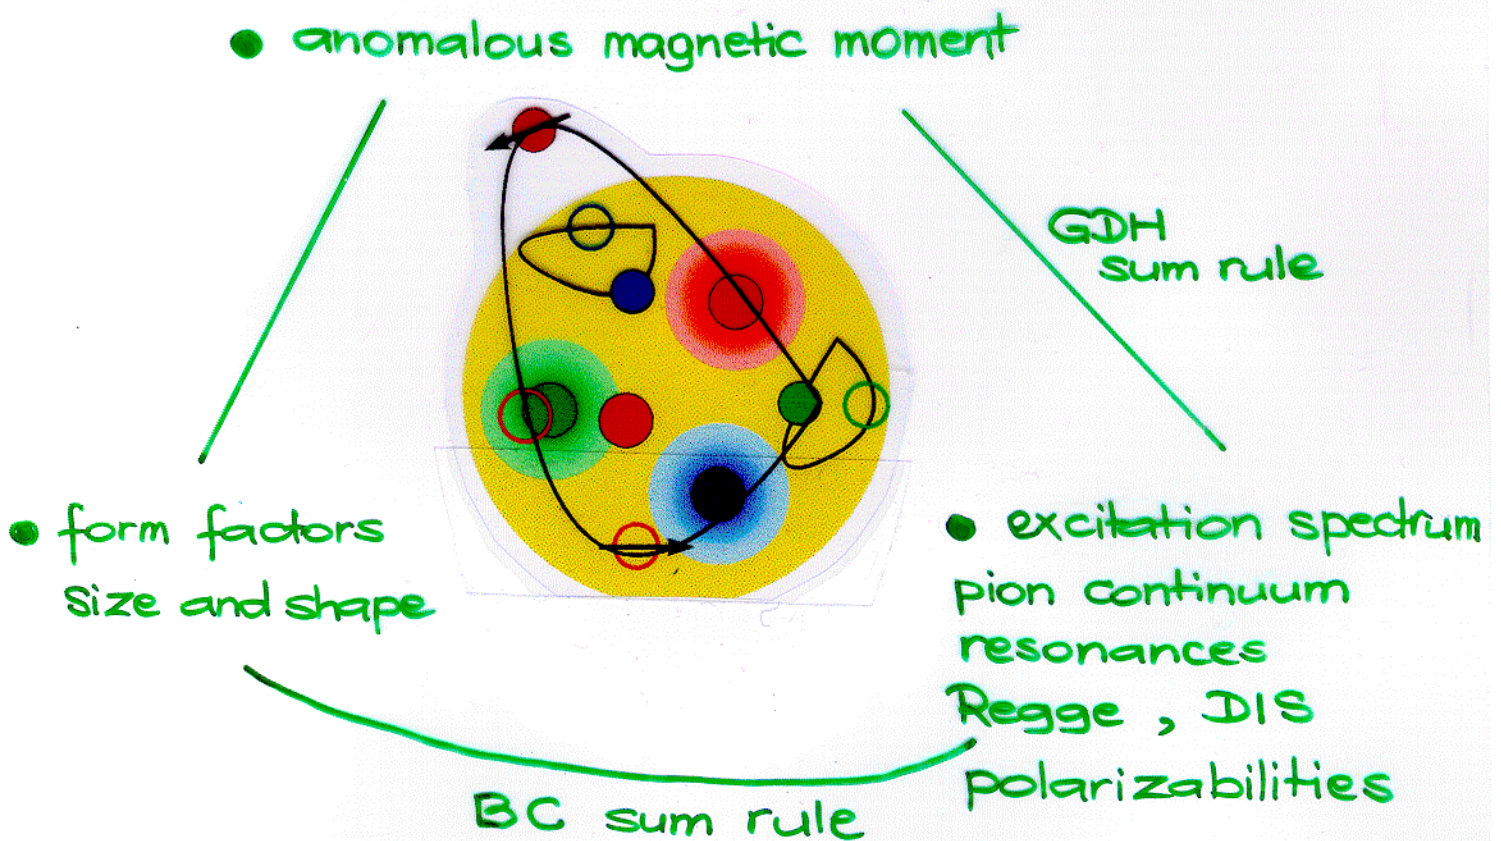 • anomalous magnetic moment
GDH
sum rule
• form factors
size and shape
• excitation spectrum
pion continuum
resonances
Regge , DIS
polarizabilities
BC sum rule